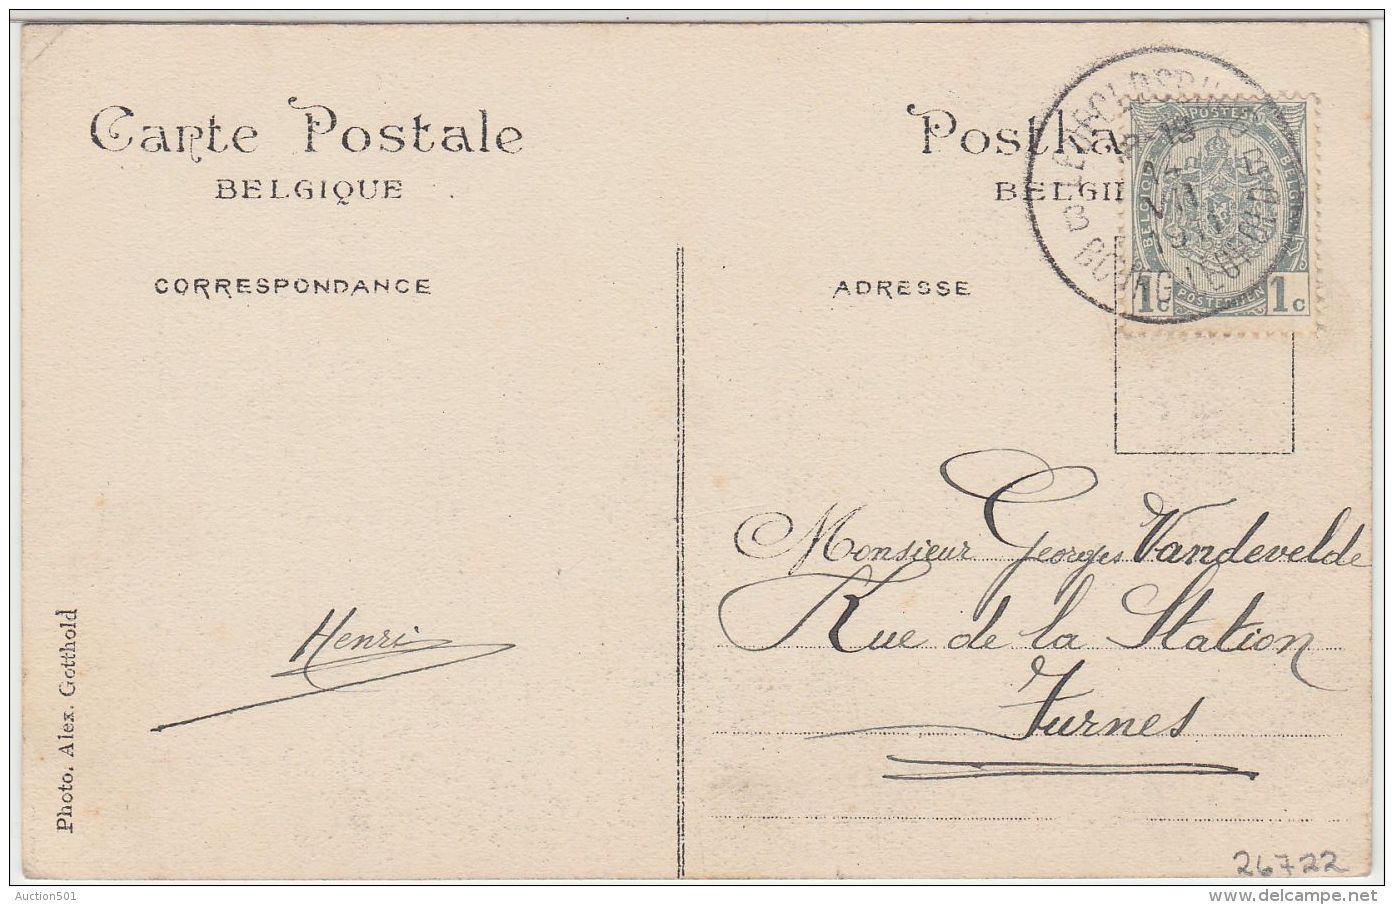 Carte Postale
BELGIQUE
CORRESPONDANCE
Henri
Photo. Alex. Gotthold
Postka
BELGI
ADRESSE
POSTES
BELGIQUE
BELGIË
POSTERIJEN
1c 1c
BOURG-LÉOPOLD
1911
Monsieur Georges Vandevelde
Rue de la Station
Furnes
26722
Auction501
http://www.delcampe.net